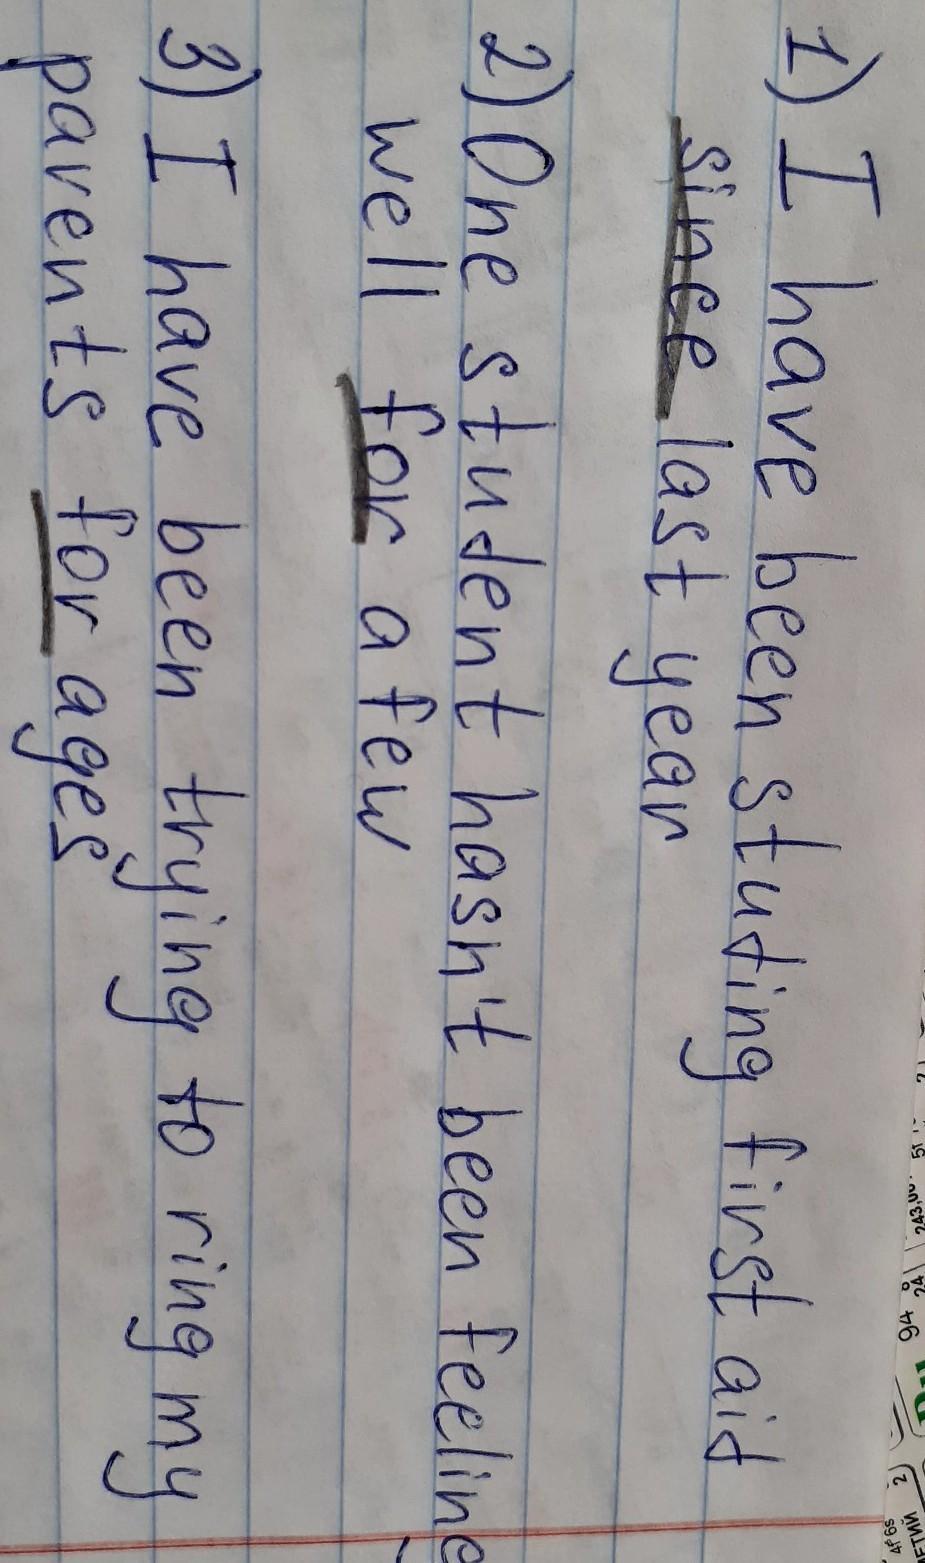 1) I have been studing first aid
since last year
2) One student hasn't been feeling
well for a few
3) I have been trying to ring my
parents for ages